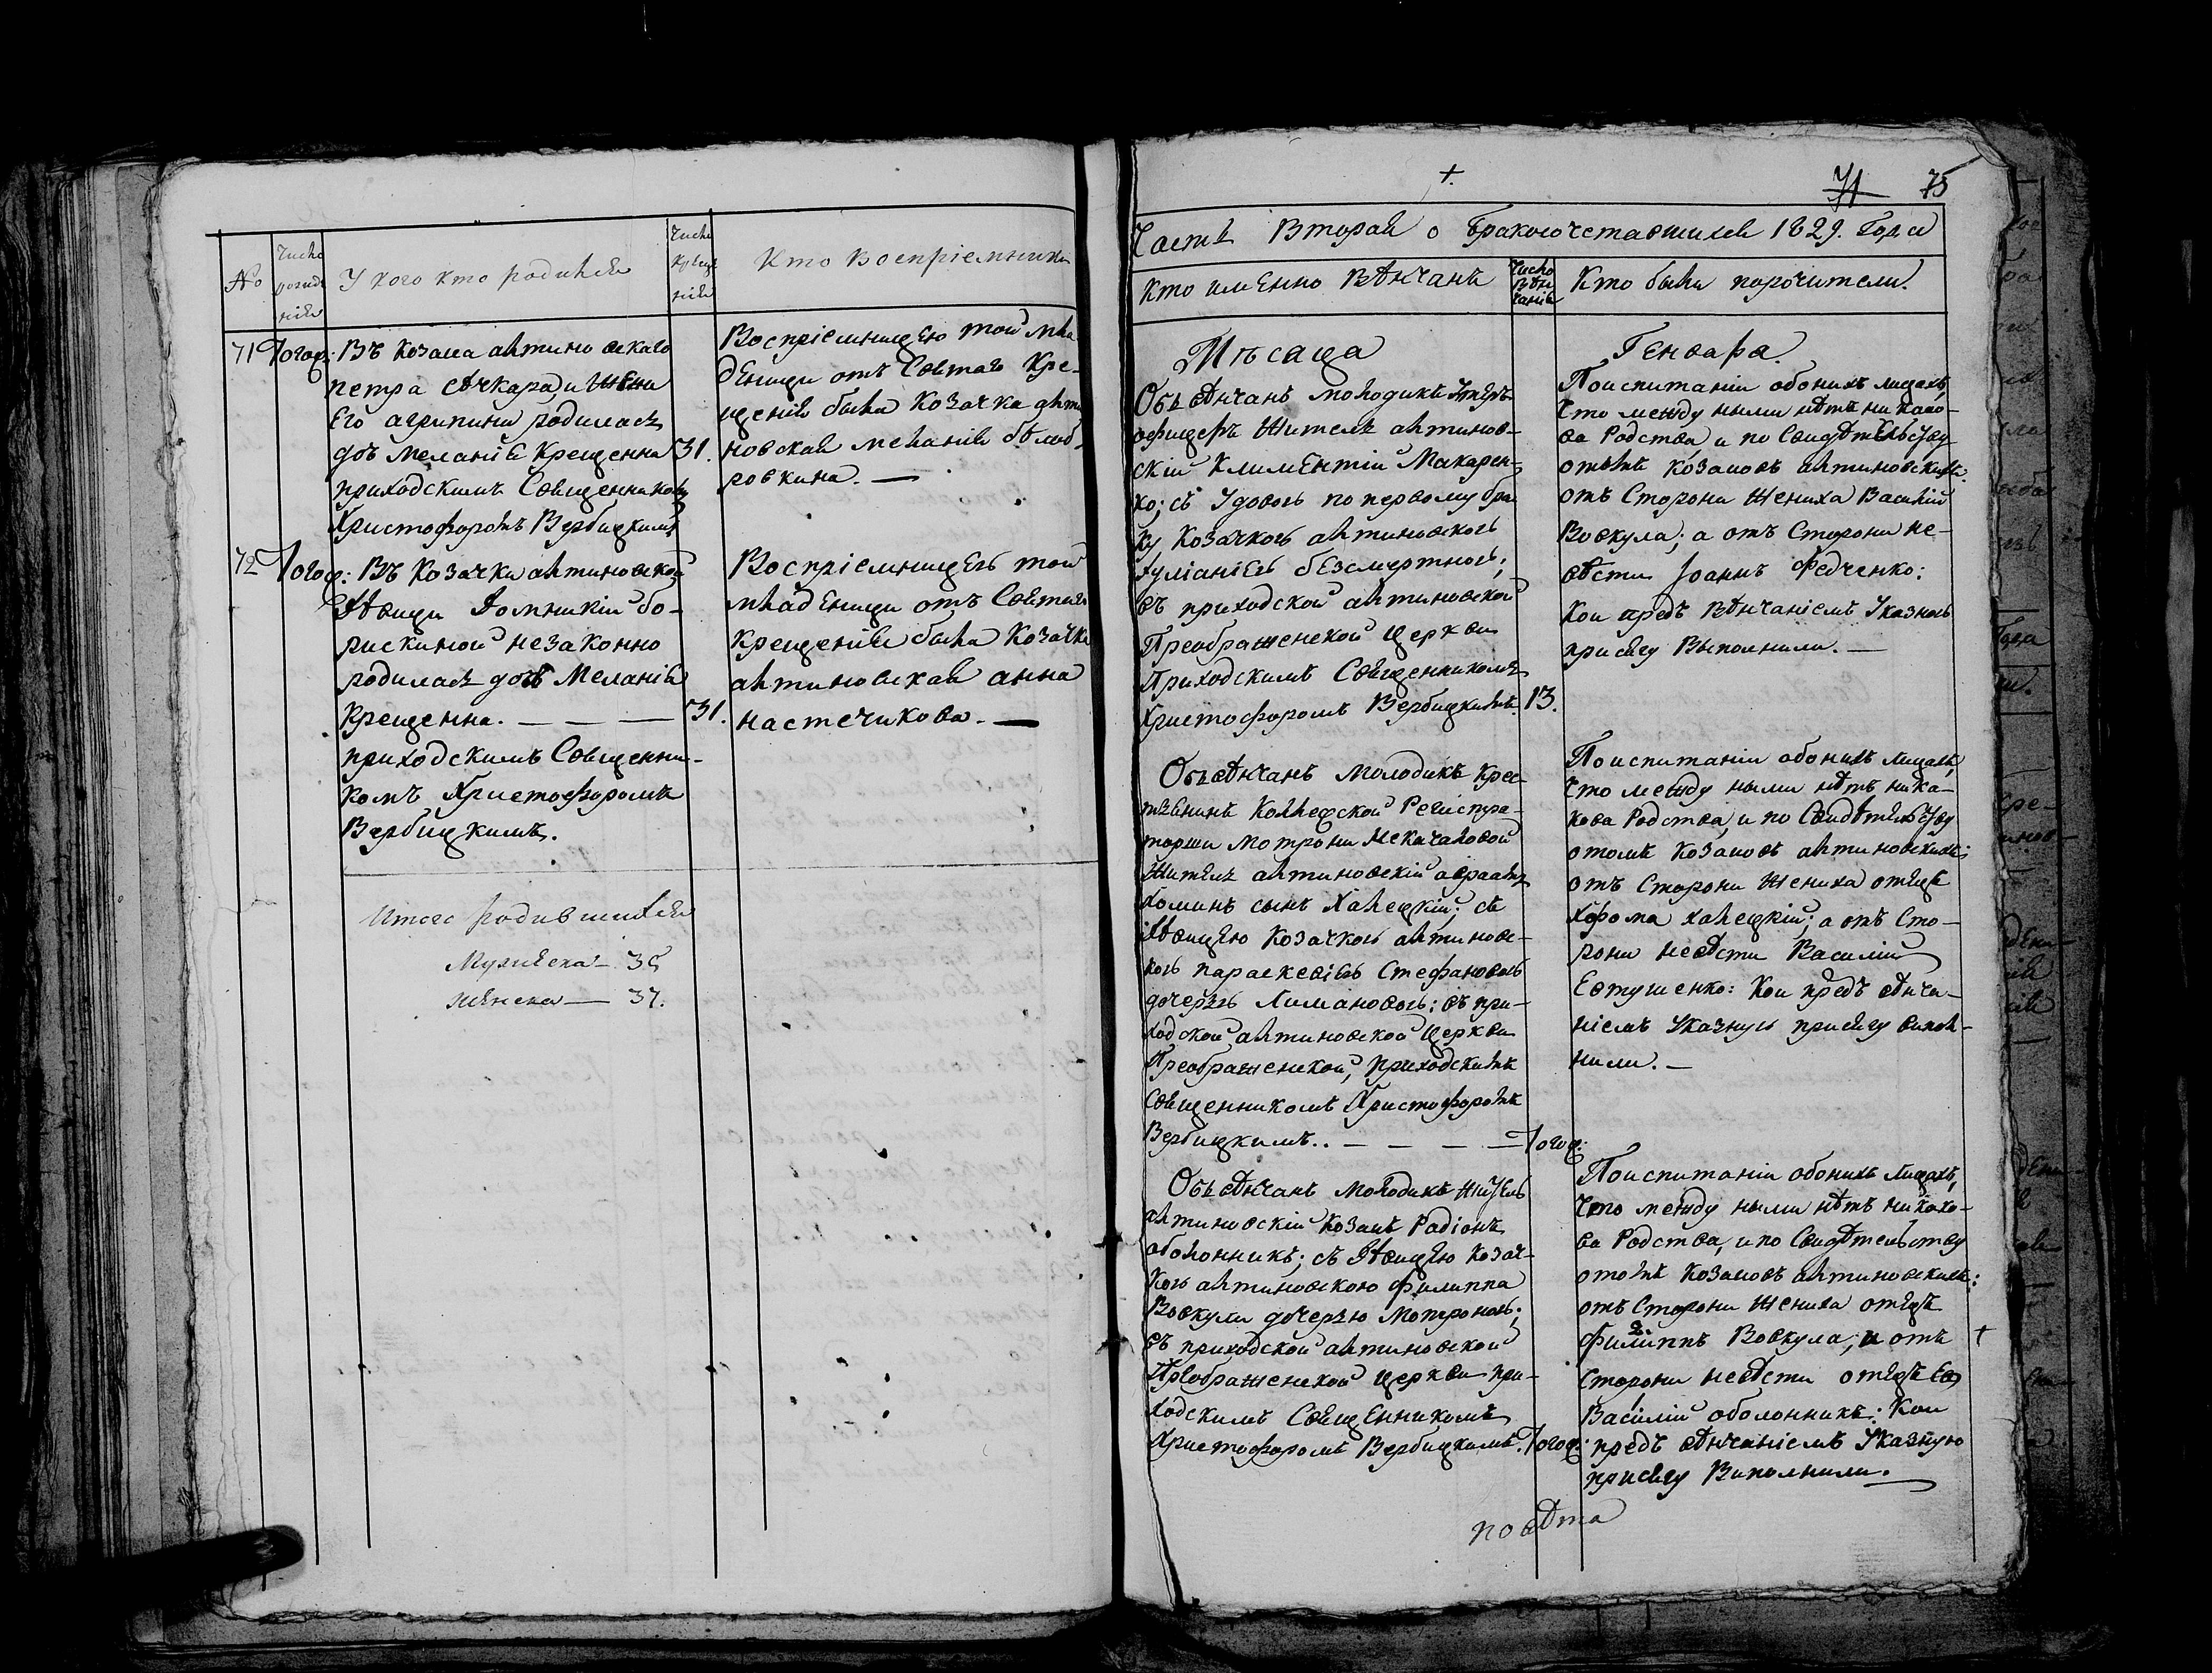 №
Число
рожде
нія
У кого кто родился
Число
креще
нія
Кто воспріемники
71 Тогож: Въ Козака алтиновскаго
Петра и жени
Его агрипини родилась
дочъ меланія Крещенна 31.
приходскимъ Священникомъ
Христофоромъ Вербицкимъ
Воспріемницею той мла
деници отъ Святаго Кре-
щенія была Козачка алти
новская меланія
72 Тогож: Въ Козачки алтиновской
Дѣвици Домникіи бо-
рискиной незаконно
родилась дочъ Меланія
Крещенна. — — — 31.
приходскимъ Священни-
комъ Христофоромъ
Вербицкимъ.
Воспріемницею той
младеници отъ Святаго
Крещенія была Козачка
алтиновская анна
настечикова. —
Итого родившихся
Мужеска — 35
женска — 37.
+.
71 75
Часть Вторая о Бракосочетавшихся 1829. Года
Кто именно Вѣнчанъ
Число
вѣн
чанія
Кто были поручители.
Мѣсаца
Генвара
Обьвѣнчанъ молодикъ Унтеръ
офицеръ Житель алтинов-
скій Климентій Макарен-
ко; съ Удовою по первому бра
ку Козачкою алтиновскою
Іуліаніею безсмертною;
въ приходской алтиновской
Преображенской Церкви
Приходскимъ Священникомъ
Христофоромъ Вербицкимъ. 13.
Поиспитаніи обоихъ лицахъ,
Что между ними нѣтъ ни како-
ва Родства, и по Свидѣтельству
отомъ козаковъ алтиновскихъ:
отъ Сторони Жениха Василій
Вовкула; а отъ Сторони не-
вѣсти Іоаннъ Федченко:
Кои предъ Вѣнчаніемъ Указною
присягу Выполнили. —
Обьвѣнчанъ Молодикъ Крес-
тянинъ Коллежской Регистра-
торши Мотрони
Житель алтиновскій авраамъ
Хоминъ сынъ Халецкій; съ
Дѣвицею Козачкою алтинов-
кою параскевіею Стефановою
дочерью Лимановою: въ при-
ходской алтиновской Церкви
Преображенской, Приходскимъ
Священникомъ Христофоромъ
Вербицкимъ.. — — — — Тогож:
Поиспитаніи обоихъ Лицахъ,
Что между ними нѣтъ ника-
кова Родства, и по Свидѣтельству
отомъ Козаковъ алтиновскихъ:
отъ Сторони Жениха отецъ
Хома халецкій; а отъ Сто-
рони невѣсти Василій
Евтушенко: Кои предъ вѣнча-
ніемъ Указную присягу випол-
нили. —
Обьвѣнчанъ Молодикъ житель
алтиновскій Козакъ Родіонъ
оболонникъ; съ Дѣвицею Козач-
кою алтиновскою филиппа
Вовкули дочерью Мотроною;
въ приходской алтиновской
Преображенской Церкви при-
ходскимъ Священникомъ
Христофоромъ Вербицкимъ. Тогож:
Поиспитаніи обоихъ Лицахъ,
Что между ними нѣтъ никако-
ва Родства, и по Свидѣтельству
отомъ Козаковъ алтиновскихъ:
отъ Сторони Жениха отецъ
филиппъ Вовкула; а отъ +
Сторони невѣсти отецъ Ея
Василій оболонникъ: Кои
предъ вѣнчаніемъ Указную
присягу Виполнили.
повѣта